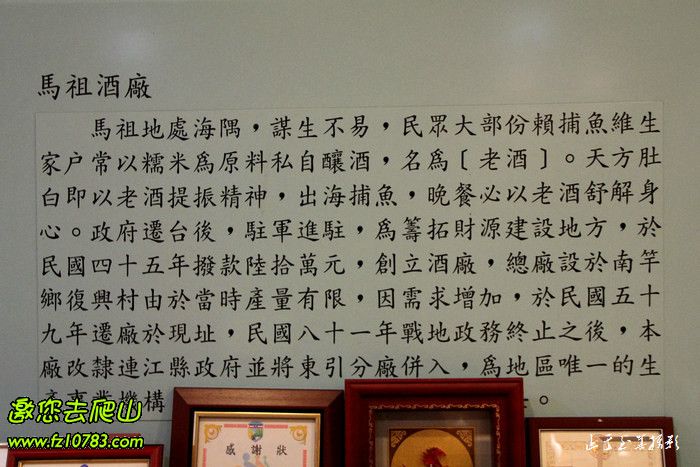 馬祖酒廠
馬祖地處海隅，謀生不易，民眾大部份賴捕魚維生
家户常以糯米為原料私自釀酒，名為〔老酒〕。天方肚
白即以老酒提振精神，出海捕魚，晚餐必以老酒舒解身
心。政府遷台後，駐軍進駐，為籌拓財源建設地方，於
民國四十五年撥款陸拾萬元，創立酒廠，總廠設於南竿
鄉復興村由於當時產量有限，因需求增加，於民國五十
九年遷廠於現址，民國八十一年戰地政務終止之後，本
廠改隸連江縣政府並將東引分廠併入，為地區唯一的生
業機構
感謝狀
邀您去爬山
www.fz10783.com